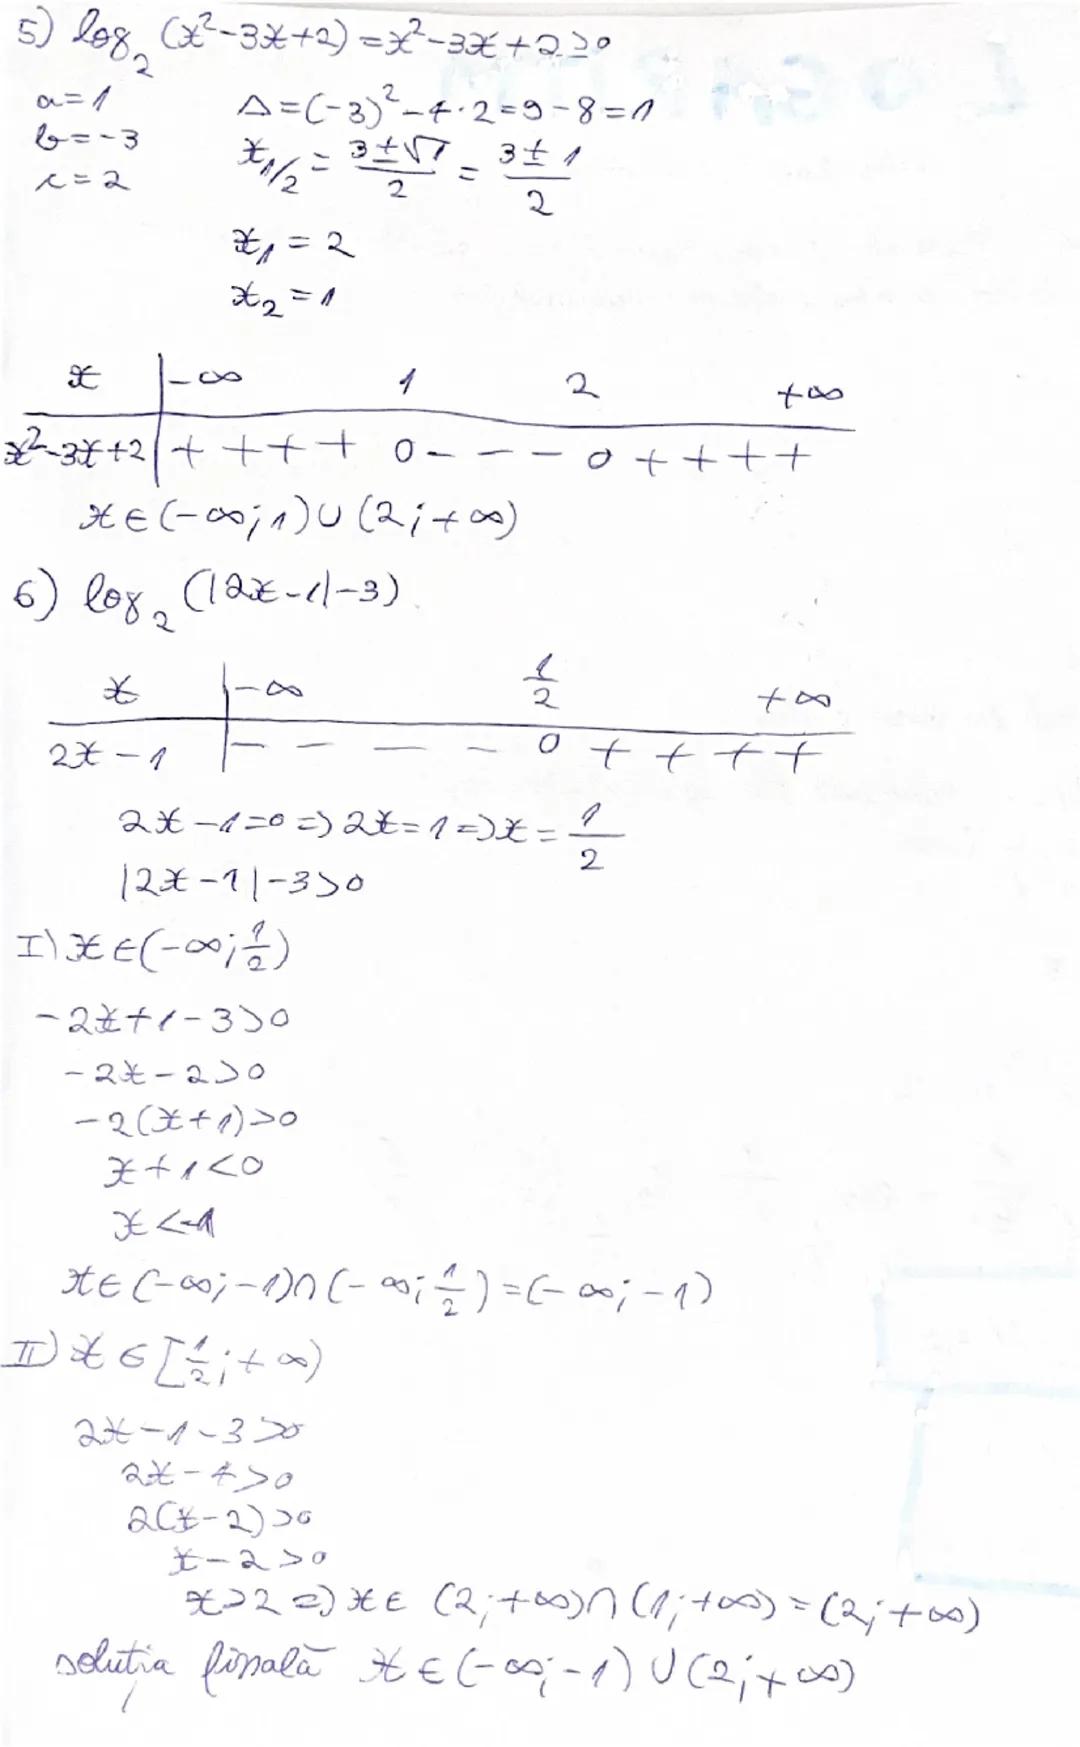 5) log₂ (x²-3x+2) = x²-3x+2>0
a=1 Δ=(-3)²-4·2=9-8=1
b=-3 x₁/₂ = (3±√1)/2 = (3±1)/2
c=2
x₁ = 2
x₂ = 1
x | -∞ 1 2 +∞
x²-3x+2 | + + + + 0 - - - - 0 + + + +
x∈(-∞;1)∪(2;+∞)
6) log₂ (|2x-1|-3)
x | -∞ 1/2 +∞
2x-1 | - - - - 0 + + + +
2x-1=0 => 2x=1 => x = 1/2
|2x-1|-3>0
I) x∈(-∞;1/2)
-2x+1-3>0
-2x-2>0
-2(x+1)>0
x+1<0
x<-1
x∈(-∞;-1)∩(-∞;1/2)=(-∞;-1)
II) x∈[1/2;+∞)
2x-1-3>0
2x-4>0
2(x-2)>0
x-2>0
x>2 => x∈ (2;+∞)∩(1;+∞)=(2;+∞)
soluția finală x∈(-∞;-1)∪(2;+∞)